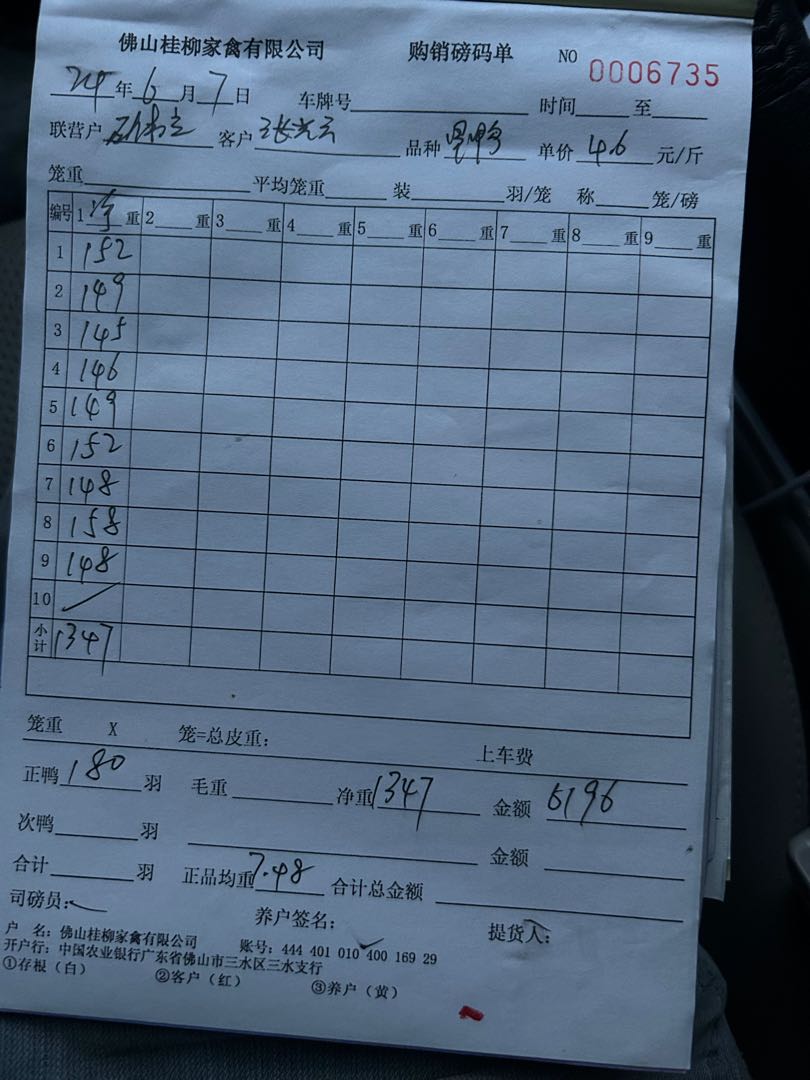 佛山桂柳家禽有限公司 购销磅码单 NO 0006735
24年6月7日 车牌号 时间 至
联营户 客户 张兴云 品种 单价 4.6 元/斤
笼重 平均笼重 装 羽/笼 称 笼/磅
编号 1净重 2 重 3 重 4 重 5 重 6 重 7 重 8 重 9 重
1 152
2 149
3 145
4 146
5 149
6 152
7 148
8 158
9 148
10
小计 1347
笼重 X 笼=总皮重: 上车费
正鸭 180 羽 毛重 净重 1347 金额 6196
次鸭 羽 金额
合计 羽 正品均重 7.48 合计总金额
司磅员: 养户签名: 提货人:
户 名: 佛山桂柳家禽有限公司 账号: 444 401 010 400 169 29
开户行: 中国农业银行广东省佛山市三水区三水支行
①存根（白） ②客户（红） ③养户（黄）